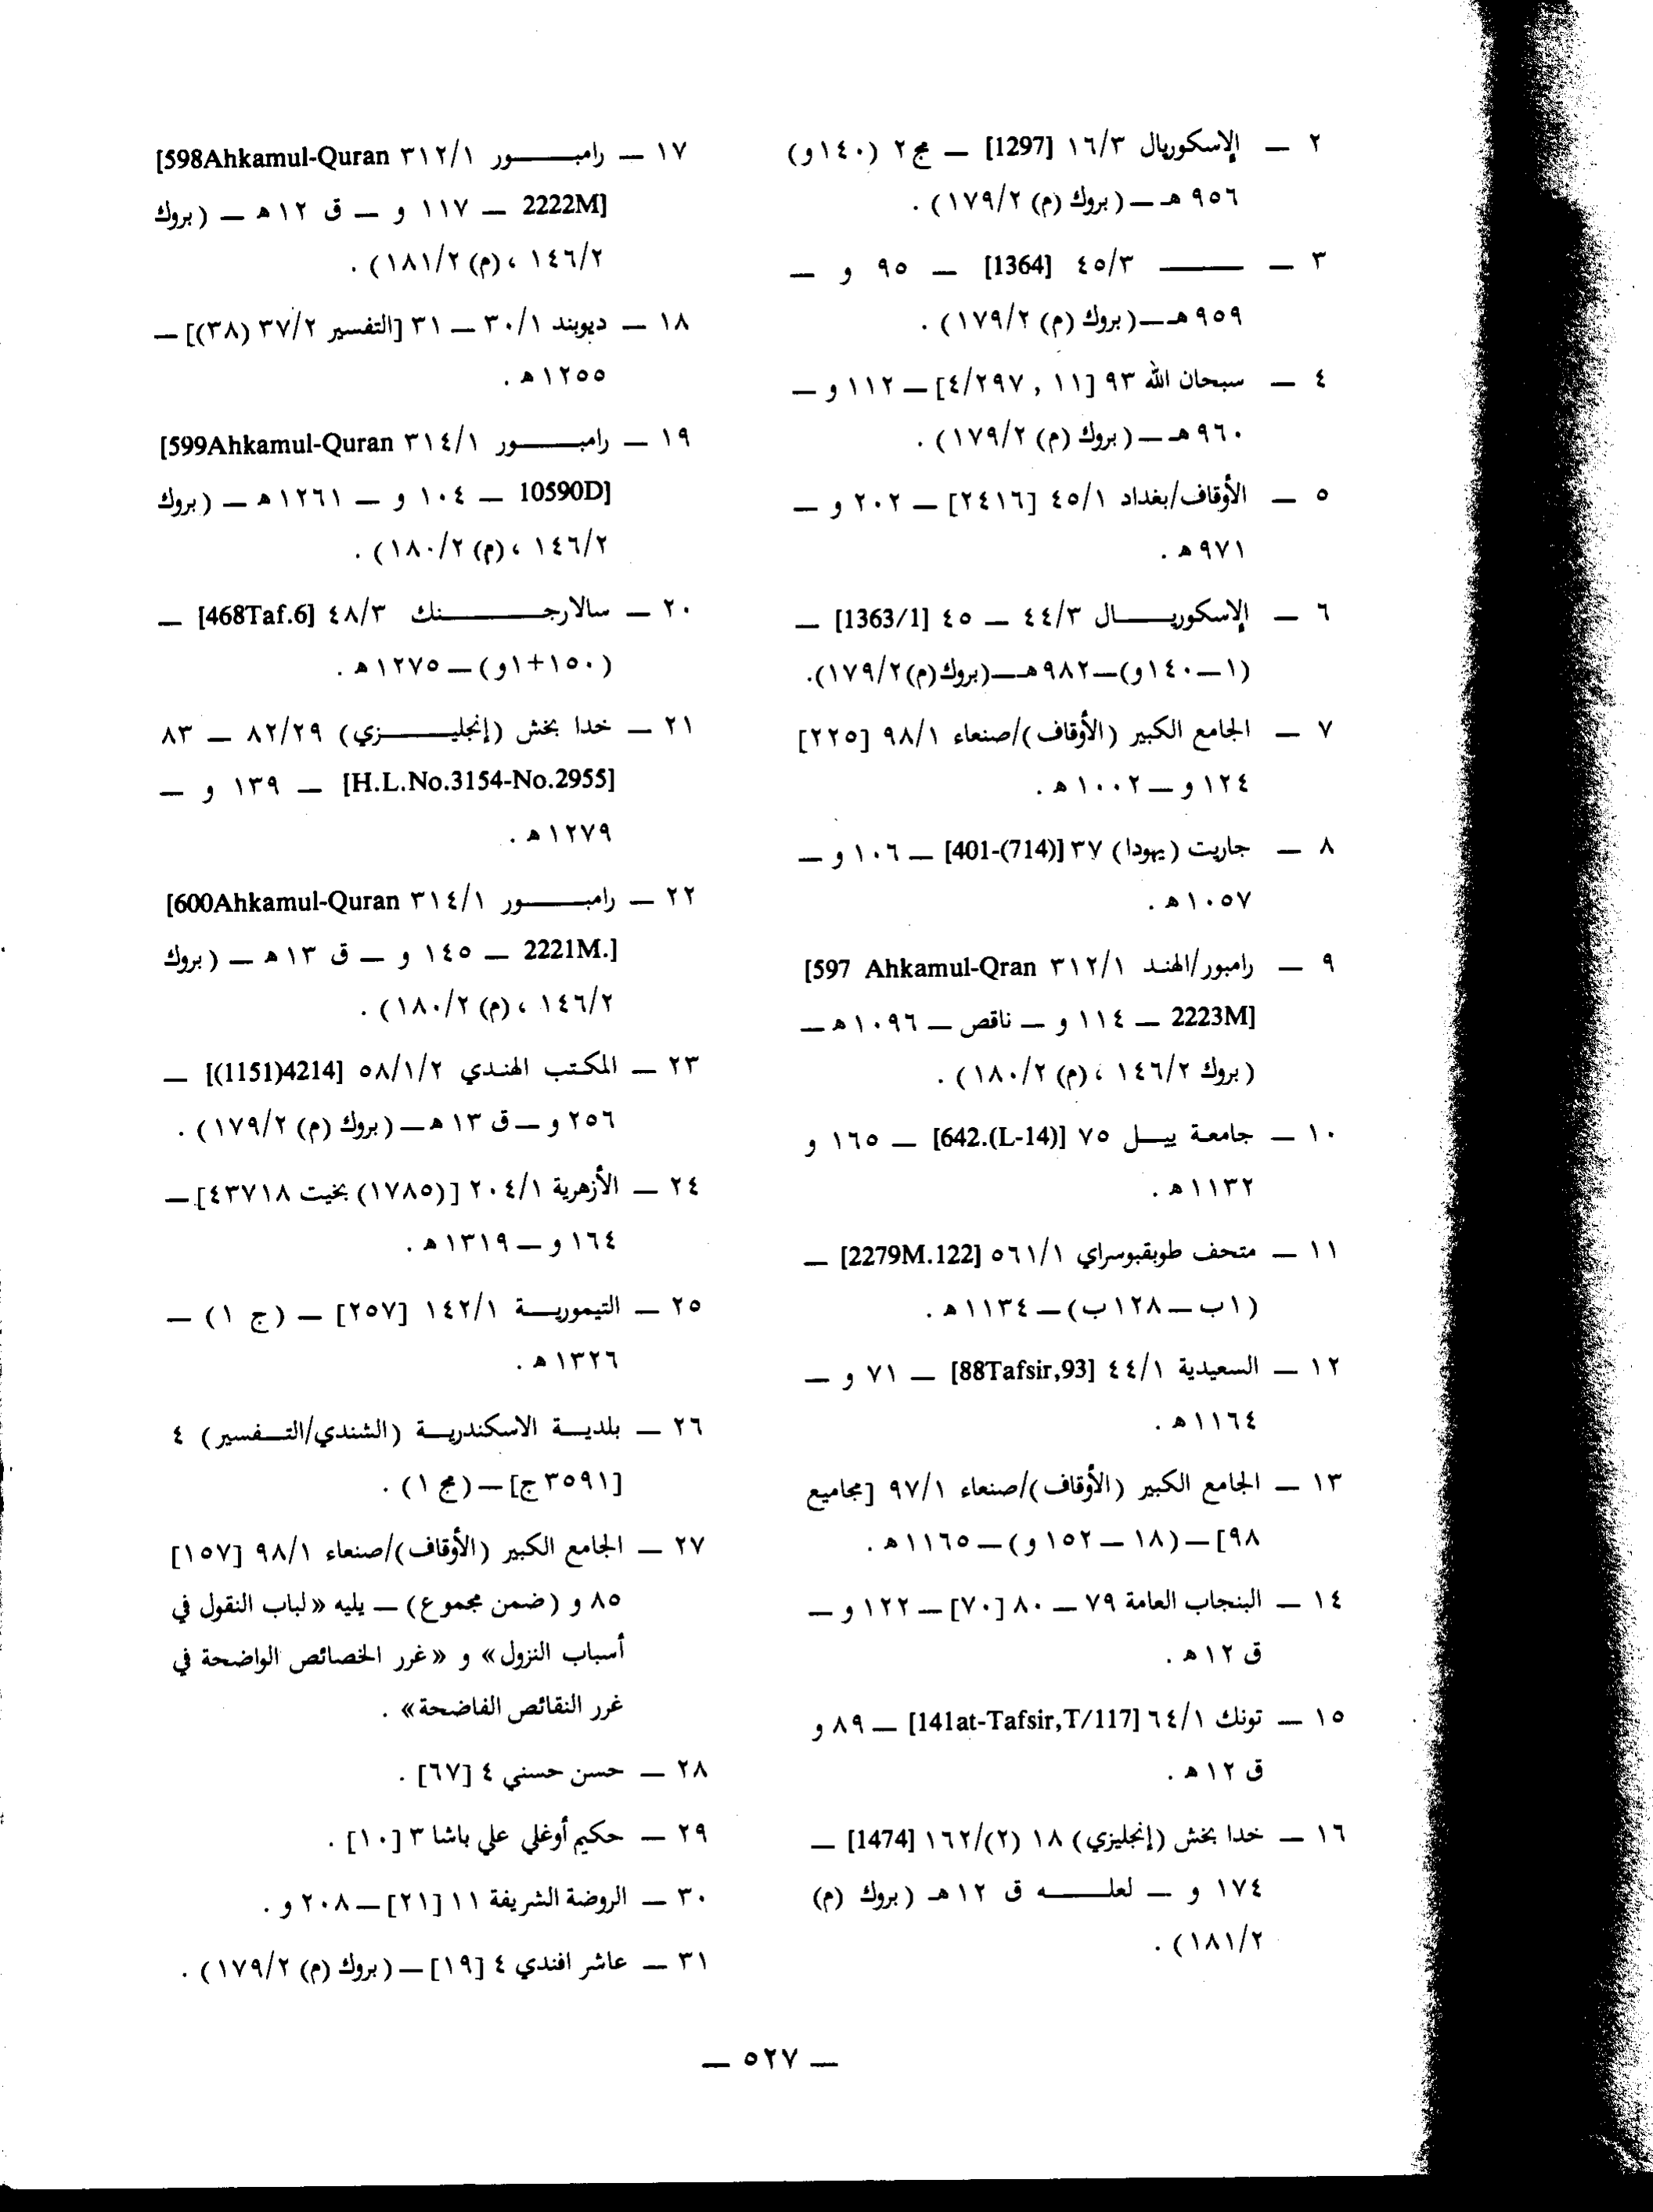 ٢ — الإسكوريال ١٦/٣ [1297] — مج ٢ (١٤٠و)
٩٥٦ هـ — (بروك (م) ١٧٩/٢) .
٣ — ——— ٤٥/٣ [1364] — ٩٥ و —
٩٥٩ هـ — (بروك (م) ١٧٩/٢) .
٤ — سبحان الله ٩٣ [١١ , ٤/٢٩٧] — ١١٢ و —
٩٦٠ هـ — (بروك (م) ١٧٩/٢) .
٥ — الأوقاف/بغداد ٤٥/١ [٢٤١٦] — ٢٠٢ و —
٩٧١ هـ .
٦ — الإسكوريـــال ٤٤/٣ — ٤٥ [1363/1] —
(١—١٤٠و)—٩٨٢هـ—(بروك(م)١٧٩/٢).
٧ — الجامع الكبير (الأوقاف)/صنعاء ٩٨/١ [٢٢٥]
١٢٤ و — ١٠٠٢ هـ .
٨ — جاريت (يهودا) ٣٧ [401-(714)] — ١٠٦ و —
١٠٥٧ هـ .
٩ — رامبور/الهند ٣١٢/١ [597 Ahkamul-Qran
2223M] — ١١٤ و — ناقص — ١٠٩٦ هـ —
(بروك ١٤٦/٢ ، (م) ١٨٠/٢) .
١٠ — جامعة ييـــل ٧٥ [642.(L-14)] — ١٦٥ و
١١٣٢ هـ .
١١ — متحف طوبقبوسراي ٥٦١/١ [2279M.122] —
(١ب — ١٢٨ب) — ١١٣٤ هـ .
١٢ — السعيدية ٤٤/١ [88Tafsir,93] — ٧١ و —
١١٦٤ هـ .
١٣ — الجامع الكبير (الأوقاف)/صنعاء ٩٧/١ [مجاميع
٩٨] — (١٨ — ١٥٢ و) — ١١٦٥ هـ .
١٤ — البنجاب العامة ٧٩ — ٨٠ [٧٠] — ١٢٢ و —
ق ١٢ هـ .
١٥ — تونك ٦٤/١ [141at-Tafsir,T/117] — ٨٩ و
ق ١٢ هـ .
١٦ — خدا بخش (إنجليزي) ١٨ (٢)/١٦٢ [1474] —
١٧٤ و — لعلـــه ق ١٢ هـ (بروك (م)
١٨١/٢) .
١٧ — رامبـــور ٣١٢/١ [598Ahkamul-Quran
2222M] — ١١٧ و — ق ١٢ هـ — (بروك
١٤٦/٢ ، (م) ١٨١/٢) .
١٨ — ديوبند ٣٠/١ — ٣١ [التفسير ٣٧/٢ (٣٨)] —
١٢٥٥ هـ .
١٩ — رامبـــور ٣١٤/١ [599Ahkamul-Quran
10590D] — ١٠٤ و — ١٢٦١ هـ — (بروك
١٤٦/٢ ، (م) ١٨٠/٢) .
٢٠ — سالارجـــنك ٤٨/٣ [468Taf.6] —
(١٥٠+١و) — ١٢٧٥ هـ .
٢١ — خدا بخش (إنجليـــزي) ٨٢/٢٩ — ٨٣
[H.L.No.3154-No.2955] — ١٣٩ و —
١٢٧٩ هـ .
٢٢ — رامبـــور ٣١٤/١ [600Ahkamul-Quran
2221M.] — ١٤٥ و — ق ١٣ هـ — (بروك
١٤٦/٢ ، (م) ١٨٠/٢) .
٢٣ — المكتب الهندي ٥٨/١/٢ [4214(1151)] —
٢٥٦ و — ق ١٣ هـ — (بروك (م) ١٧٩/٢) .
٢٤ — الأزهرية ٢٠٤/١ [(١٧٨٥) بخيت ٤٣٧١٨] —
١٦٤ و — ١٣١٩ هـ .
٢٥ — التيموريـــة ١٤٢/١ [٢٥٧] — (ج ١) —
١٣٢٦ هـ .
٢٦ — بلديـــة الاسكندريـــة (الشندي/التـــفسير) ٤
[٣٥٩١ ج] — (مج ١) .
٢٧ — الجامع الكبير (الأوقاف)/صنعاء ٩٨/١ [١٥٧]
٨٥ و (ضمن مجموع) — يليه «لباب النقول في
أسباب النزول» و «غرر الخصائص الواضحة في
غرر النقائص الفاضحة» .
٢٨ — حسن حسني ٤ [٦٧] .
٢٩ — حكيم أوغلي علي باشا ٣ [١٠] .
٣٠ — الروضة الشريفة ١١ [٢١] — ٢٠٨ و .
٣١ — عاشر افندي ٤ [١٩] — (بروك (م) ١٧٩/٢) .
— ٥٢٧ —